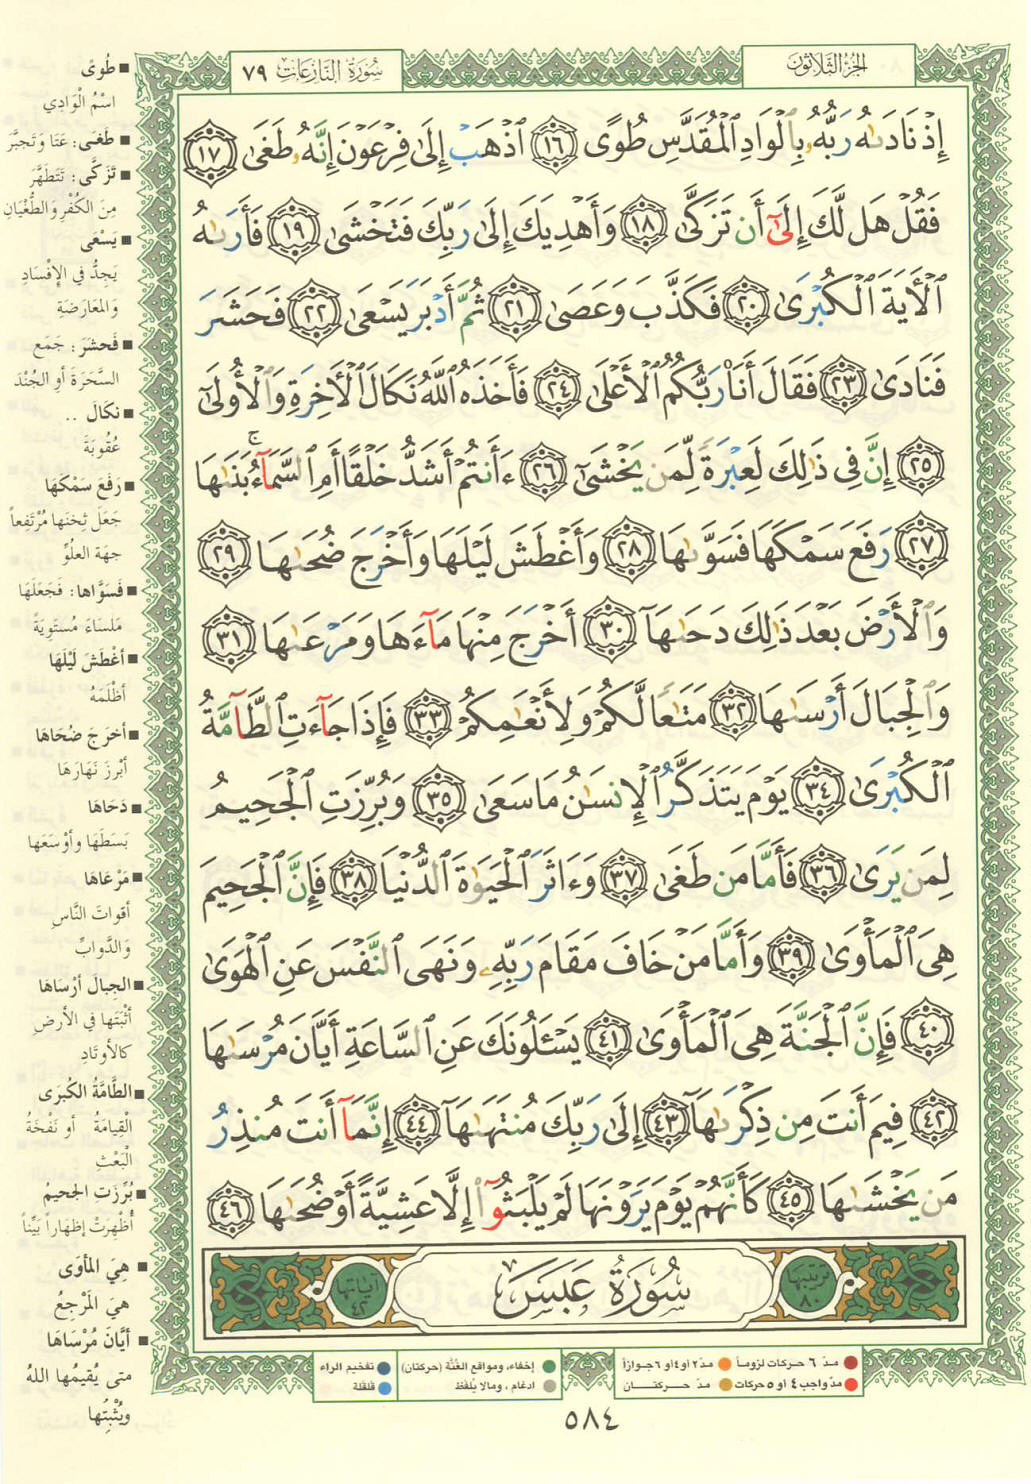 الجزء الثلاثون
سورة النازعات ٧٩
إِذْ نَادَىٰهُ رَبُّهُۥ بِٱلْوَادِ ٱلْمُقَدَّسِ طُوًى ١٦ ٱذْهَبْ إِلَىٰ فِرْعَوْنَ إِنَّهُۥ طَغَىٰ ١٧
فَقُلْ هَل لَّكَ إِلَىٰٓ أَن تَزَكَّىٰ ١٨ وَأَهْدِيَكَ إِلَىٰ رَبِّكَ فَتَخْشَىٰ ١٩ فَأَرَىٰهُ
ٱلْـَٔايَةَ ٱلْكُبْرَىٰ ٢٠ فَكَذَّبَ وَعَصَىٰ ٢١ ثُمَّ أَدْبَرَ يَسْعَىٰ ٢٢ فَحَشَرَ
فَنَادَىٰ ٢٣ فَقَالَ أَنَا۠ رَبُّكُمُ ٱلْأَعْلَىٰ ٢٤ فَأَخَذَهُ ٱللَّهُ نَكَالَ ٱلْـَٔاخِرَةِ وَٱلْأُولَىٰٓ
٢٥ إِنَّ فِى ذَٰلِكَ لَعِبْرَةً لِّمَن يَخْشَىٰٓ ٢٦ ءَأَنتُمْ أَشَدُّ خَلْقًا أَمِ ٱلسَّمَآءُ ۚ بَنَىٰهَا
٢٧ رَفَعَ سَمْكَهَا فَسَوَّىٰهَا ٢٨ وَأَغْطَشَ لَيْلَهَا وَأَخْرَجَ ضُحَىٰهَا ٢٩
وَٱلْأَرْضَ بَعْدَ ذَٰلِكَ دَحَىٰهَآ ٣٠ أَخْرَجَ مِنْهَا مَآءَهَا وَمَرْعَىٰهَا ٣١
وَٱلْجِبَالَ أَرْسَىٰهَا ٣٢ مَتَٰعًا لَّكُمْ وَلِأَنْعَٰمِكُمْ ٣٣ فَإِذَا جَآءَتِ ٱلطَّآمَّةُ
ٱلْكُبْرَىٰ ٣٤ يَوْمَ يَتَذَكَّرُ ٱلْإِنسَٰنُ مَا سَعَىٰ ٣٥ وَبُرِّزَتِ ٱلْجَحِيمُ
لِمَن يَرَىٰ ٣٦ فَأَمَّا مَن طَغَىٰ ٣٧ وَءَاثَرَ ٱلْحَيَوٰةَ ٱلدُّنْيَا ٣٨ فَإِنَّ ٱلْجَحِيمَ
هِىَ ٱلْمَأْوَىٰ ٣٩ وَأَمَّا مَنْ خَافَ مَقَامَ رَبِّهِۦ وَنَهَى ٱلنَّفْسَ عَنِ ٱلْهَوَىٰ
٤٠ فَإِنَّ ٱلْجَنَّةَ هِىَ ٱلْمَأْوَىٰ ٤١ يَسْـَٔلُونَكَ عَنِ ٱلسَّاعَةِ أَيَّانَ مُرْسَىٰهَا
٤٢ فِيمَ أَنتَ مِن ذِكْرَىٰهَآ ٤٣ إِلَىٰ رَبِّكَ مُنتَهَىٰهَآ ٤٤ إِنَّمَآ أَنتَ مُنذِرُ
مَن يَخْشَىٰهَا ٤٥ كَأَنَّهُمْ يَوْمَ يَرَوْنَهَا لَمْ يَلْبَثُوٓا۟ إِلَّا عَشِيَّةً أَوْ ضُحَىٰهَا ٤٦
ترتيبها ٨٠
سُورَةُ عَبَسَ
آياتها ٤٢
طُوىً
اسْمُ الْوَادِي
طَغَى: عَتَا وَتَجبَّرَ
تَزَكَّى: تَتَطَهَّرَ
مِنَ الكُفْرِ وَالطُّغْيَانِ
يَسْعَى
يَجِدُّ في الإفْسَادِ
وَالمُعَارَضَةِ
فَحَشَرَ: جَمَع
السَّحَرَةَ أوِ الجُنْدَ
نكَالَ ..
عُقُوبَةَ
رَفَعَ سَمْكَهَا
جَعَلَ ثِخنَها مُرْتَفِعاً
جهَةَ العلُوِّ
فَسَوَّاها: فَجَعَلَهَا
مَلسَاءَ مُستَوِيَةً
أغْطَشَ لَيْلَهَا
أظْلَمَهُ
أخرَجَ ضُحَاهَا
أبْرزَ نَهَارَهَا
دَحَاهَا
بَسَطَهَا وأوْسَعَها
مَرْعَاهَا
أقواتَ النَّاسِ
وَالدَّوابِّ
الجِبال أرْسَاهَا
أثْبَتَها في الأرضِ
كالأوتَادِ
الطَّامَّةُ الكُبرَى
الْقِيامَةُ أو نَفْخَةُ
الْبَعْثِ
بُرِّزَتِ الجحيمُ
أُظْهِرَتْ إظهَاراً بَيِّناً
هِيَ المأوَى
هيَ المَرْجِعُ
أيَّانَ مُرْسَاهَا
متى يُقيمُها اللهُ
ويُثْبِتُها
مدّ ٦ حركات لزوماً مدّ ٢ أو ٤ أو ٦ جوازاً
مدّ واجب ٤ أو ٥ حركات مدّ حركتــان
إخفاء، ومواقع الغُنَّة (حركتان)
ادغام، ومالا يُلفَظ
تفخيم الراء
قلقلة
٥٨٤